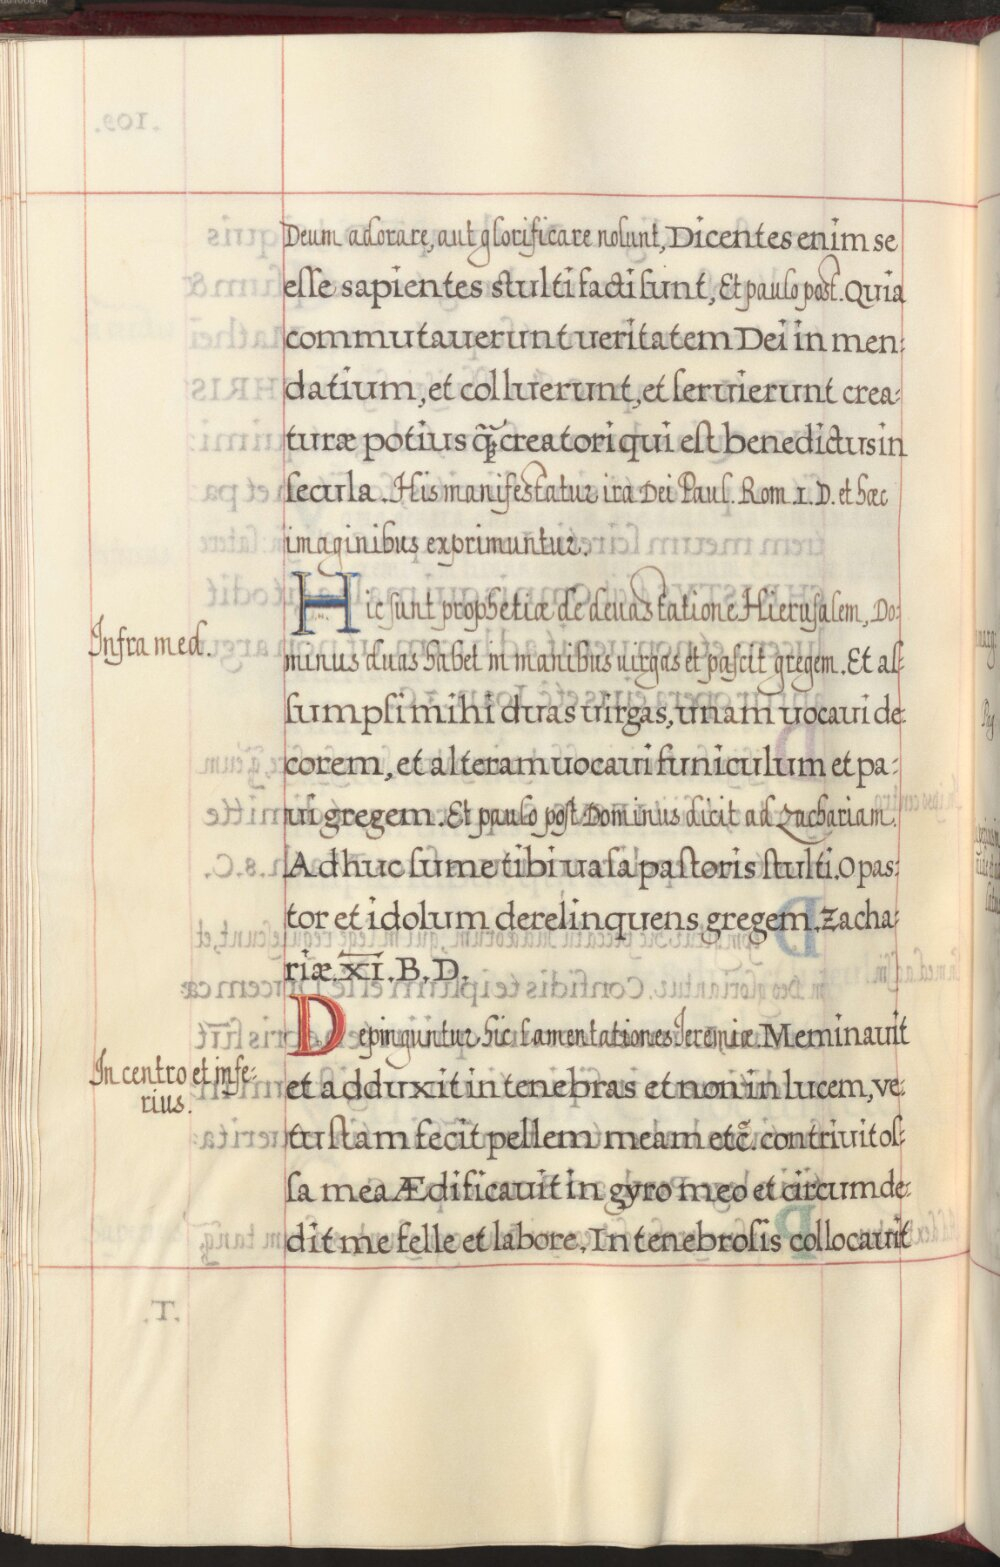 Deum adorare, aut glorificare nolunt, Dicentes enim se
esse sapientes stulti facti sunt, Et paulo post. Quia
commutauerunt ueritatem Dei in men:
datium, et colluerunt, et seruierunt crea:
turæ potius q̃ creatori qui est benedictus in
secula. His manifestatur ira Dei Paul. Rom. I. D. et hæc
imaginibus exprimuntur.
Hic sunt prophetiæ de deuastatione Hierusalem, Do:
Infra med.
minus duas habet in manibus uirgas et pascit gregem. Et as:
sumpsi mihi duas uirgas, unam uocaui de:
corem, et alteram uocaui funiculum et pa:
ui gregem. Et paulo post Dominus dicit ad Zachariam.
Adhuc sume tibi uasa pastoris stulti. O pas:
tor et idolum derelinquens gregem. Zacha:
riæ. XI. B. D.
Depinguntur hic lamentationes Jeremiæ. Me minauit
In centro et infe:
rius.
et adduxit in tenebras et non in lucem, ve:
tustam fecit pellem meam etc̃. contriuit os:
sa mea Ædificauit in gyro meo et circumde:
dit me felle et labore. In tenebrosis collocauit